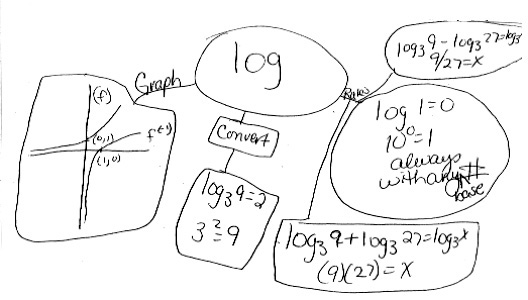 log
Graph
(f)
(0,1)
f⁽⁻¹⁾
(1,0)
Convert
log₃9=2
3²=9
log₃9-log₃27=log₃x
9/27=x
log 1=0
10⁰=1
always
with any #
base
log₃9+log₃27=log₃x
(9)(27)=x